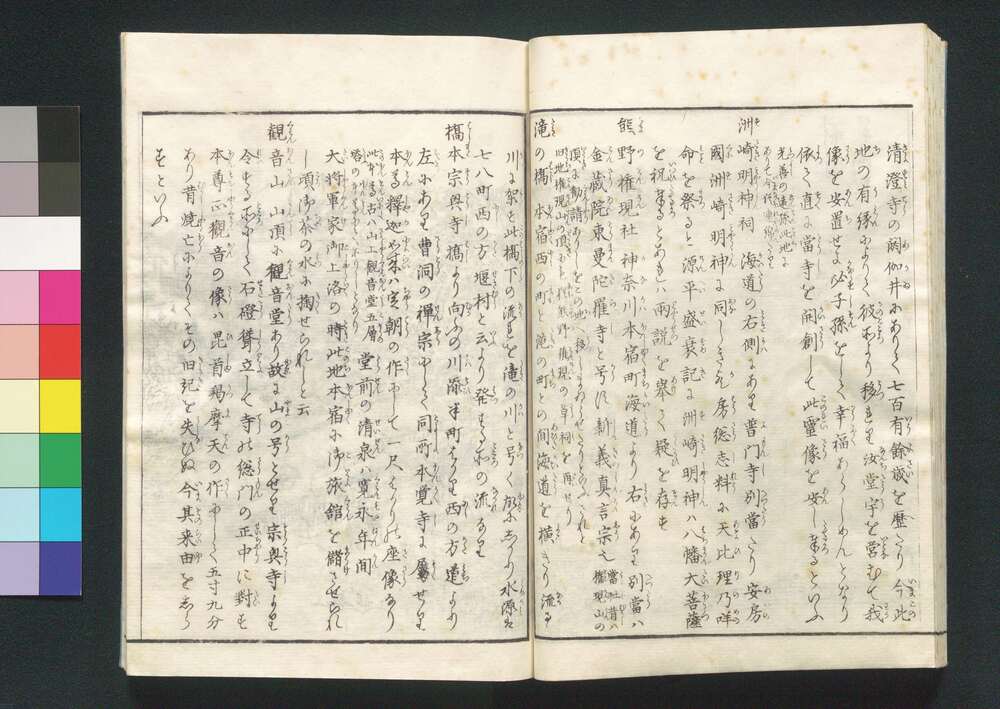 清澄寺の閼伽井にありて七百有餘歳を歴たり今此
地の有縁によりて彼所より移れり汝堂宇を営むて我
像を安置せよ必子孫をして幸福あらしめんとなり
依て直に當寺を開創して此靈像を安し奉るといふ
洲崎明神祠 海道の右側にあり普門寺別當たり 安房
國洲崎明神に同しき歟房総志料に天比理乃咩
命を祭ると源平盛衰記に洲崎明神ハ八幡大菩薩
を祝し奉るとあり今両説を挙て疑を存す
熊野権現社 神奈川本宿町海道より右にあり別當ハ
金蔵院東曼陀羅寺と号す新義真言宗也
當社昔ハ権現山の
頂に勧請ありしを此地へ移し
旧地権現山の頂にも熊野権現の草祠を再せり
滝の橋 本宿西の町と滝の町との間海道を横きり流るゝ
川に架す此橋下の流れを滝の川と号く水源ハ
七八町西の方堰村と云より発するの流るゝ
橋本宗興寺 橋より向ふの川添半町はかり西の方道より
左にあり曹洞の禅宗にして同所本覚寺に属せり
本尊釋迦如来ハ安朝の作にして一尺はかりの座像なり
此本尊古ハ山上観音堂五層
塔の
堂前の清泉ハ寛永年間
大将軍家御上洛の時此地本宿に御旅館を儲させられ
し頃御茶の水に掬せられしと云
観音山 山頂に観音堂あり故に山の号とせり宗興寺より
令するところにして石磴聳立して寺の総門の正中に對す
本尊正観音の像ハ毘首羯摩天の作にして五寸九分
あり昔焼亡によりてその旧記を失ひぬ今其来由をしら
すといふ